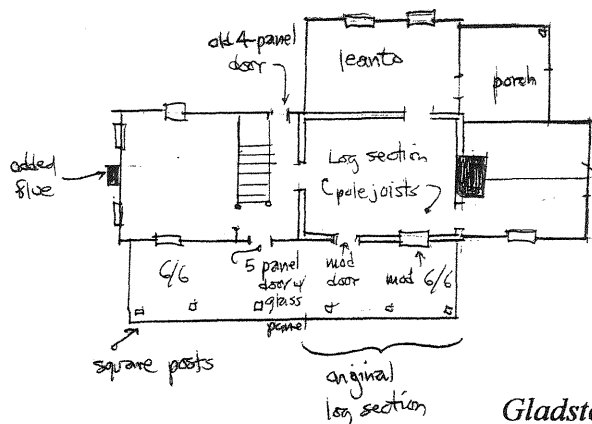 old 4-panel
door
leanto
porch
added
flue
Log section
pole joists
6/6
5 panel
door w/
glass
panel
mod
door
mod 6/6
square posts
original
log section